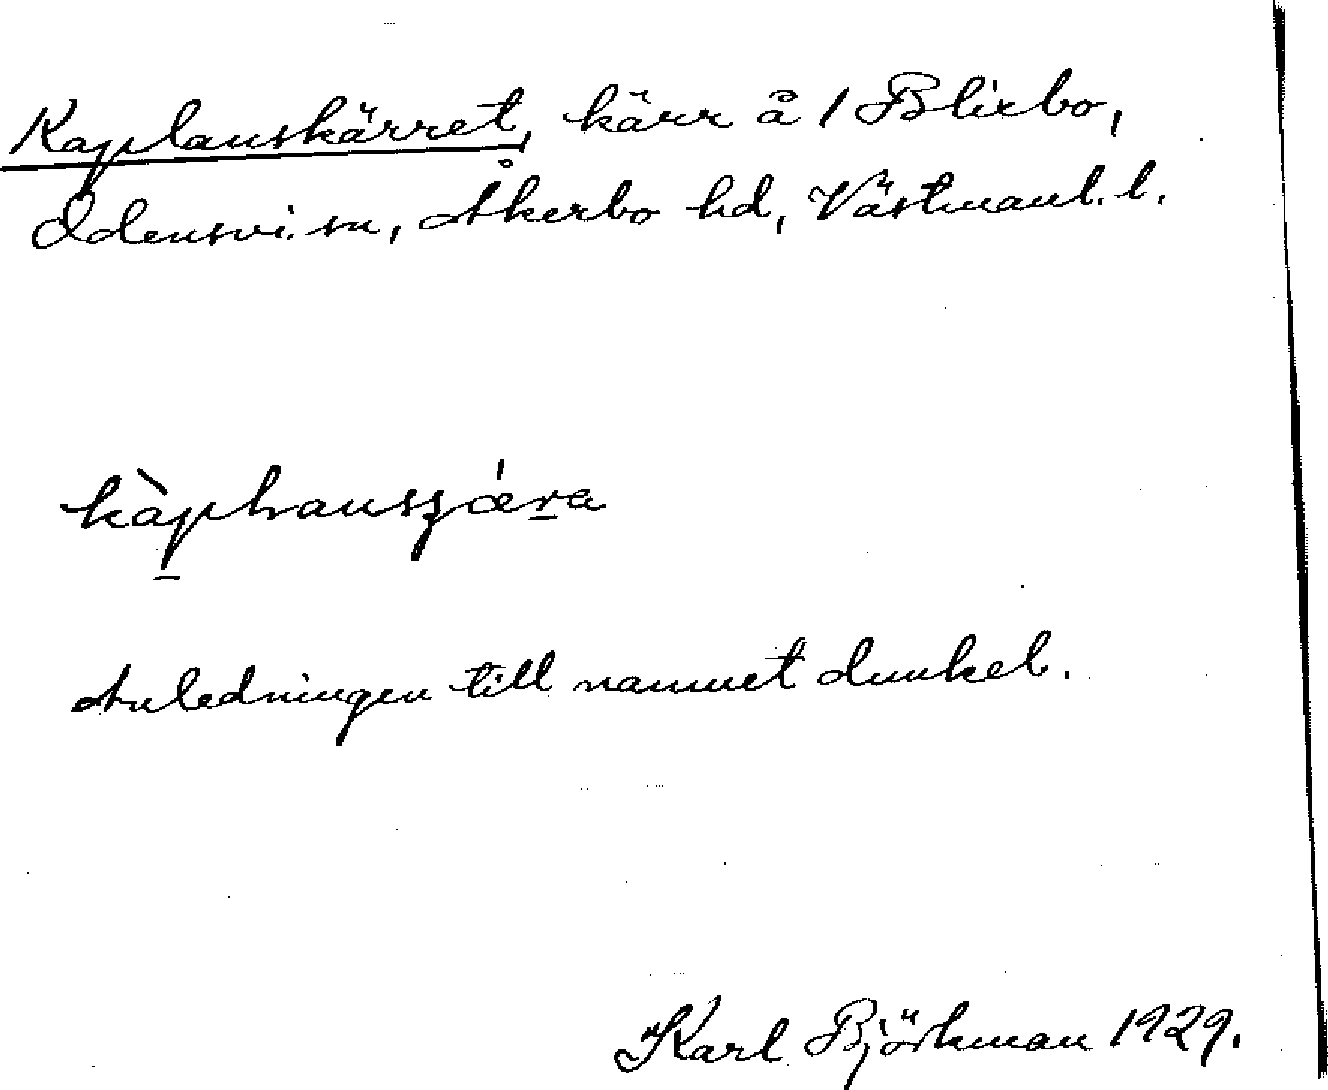 Kaplanskärret, kärr å 1 Blixbo,
Odensvi sn, Åkerbo hd, Västmanl. l.
Anledningen till namnet dunkel.
Karl Björkman 1929.